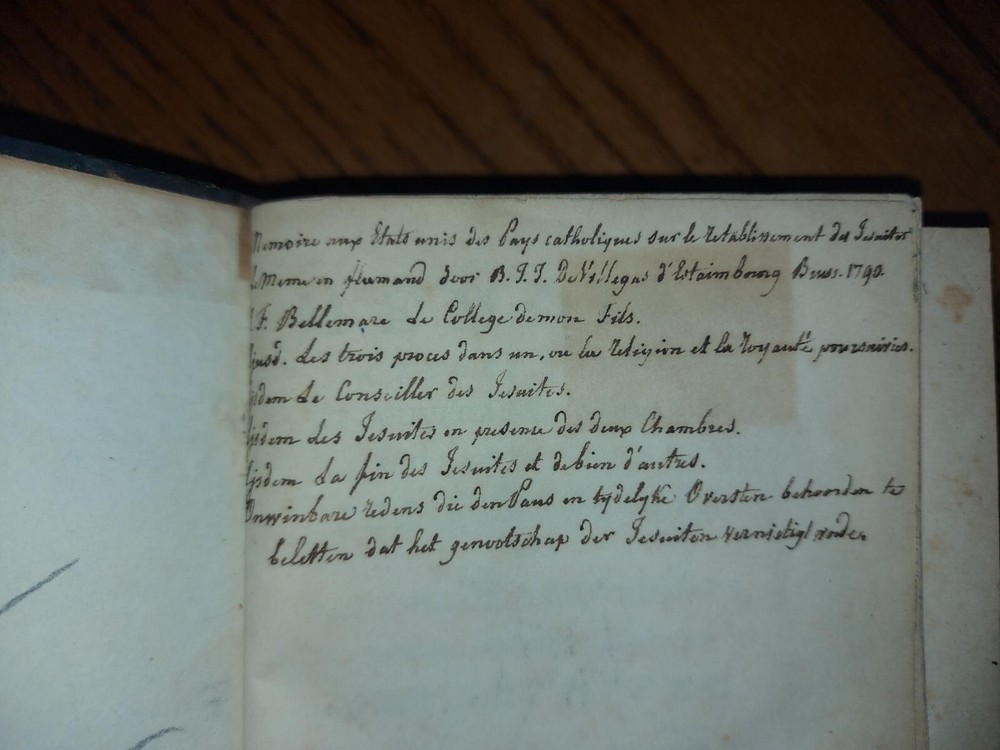 Memoire aux Etats unis des Pays catholiques sur le retablissement des Jesuites
Le Meme en flamand door B. F. J. De Villegas d'Estaimbourg Brux. 1790.
J. F. Bellemare Le College de mon Fils.
Ejusd. Les trois proces dans un, ou la religion et la royauté poursuivies.
Ejsdem Le Conseiller des Jesuites.
Ejsdem Les Jesuites en presense des deux Chambres.
Ejsdem La fin des Jesuites et de bien d'autres.
Onwinbare redens die den Paus en tydelyke Oversten behoorden te
beletten dat het genootschap der Jesuiten vernietigt